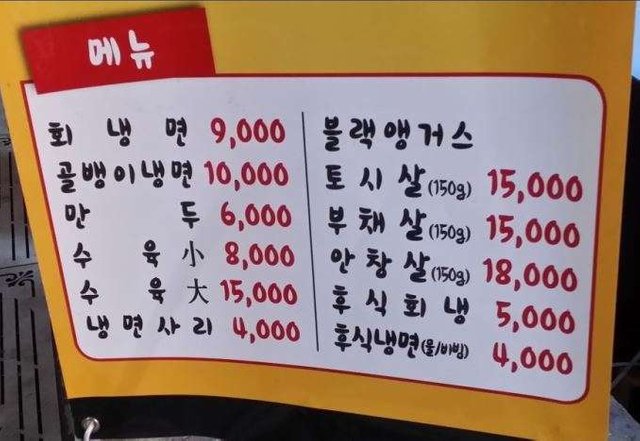 메뉴
회 냉 면 9,000
골뱅이냉면 10,000
만 두 6,000
수 육 小 8,000
수 육 大 15,000
냉면사리 4,000
블랙앵거스
토시살(150g) 15,000
부채살(150g) 15,000
안창살(150g) 18,000
후식회냉 5,000
후식냉면(물/비빔) 4,000